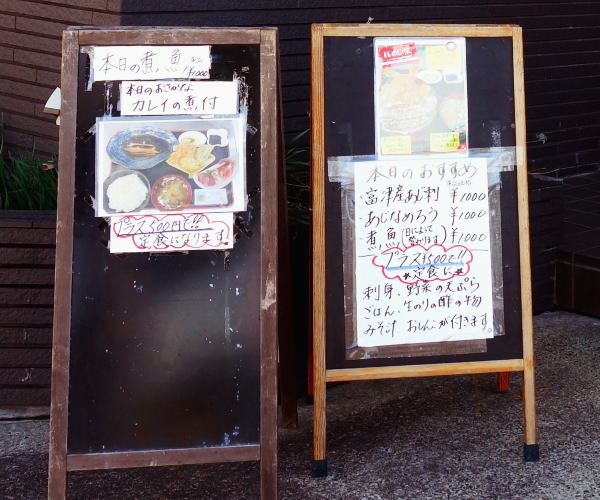 本日の煮魚 ¥1000
本日のおさかな
カレイの煮付
プラス300円で!!
定食になります
本日のおすすめ
・富津産あじ刺 ¥1000
・あじなめろう ¥1000
・煮魚(日によって変わります) ¥1000
プラス¥300で!!
定食に
刺身、野菜の天ぷら
ごはん、生のりの酢の物
みそ汁 おしんこが付きます。